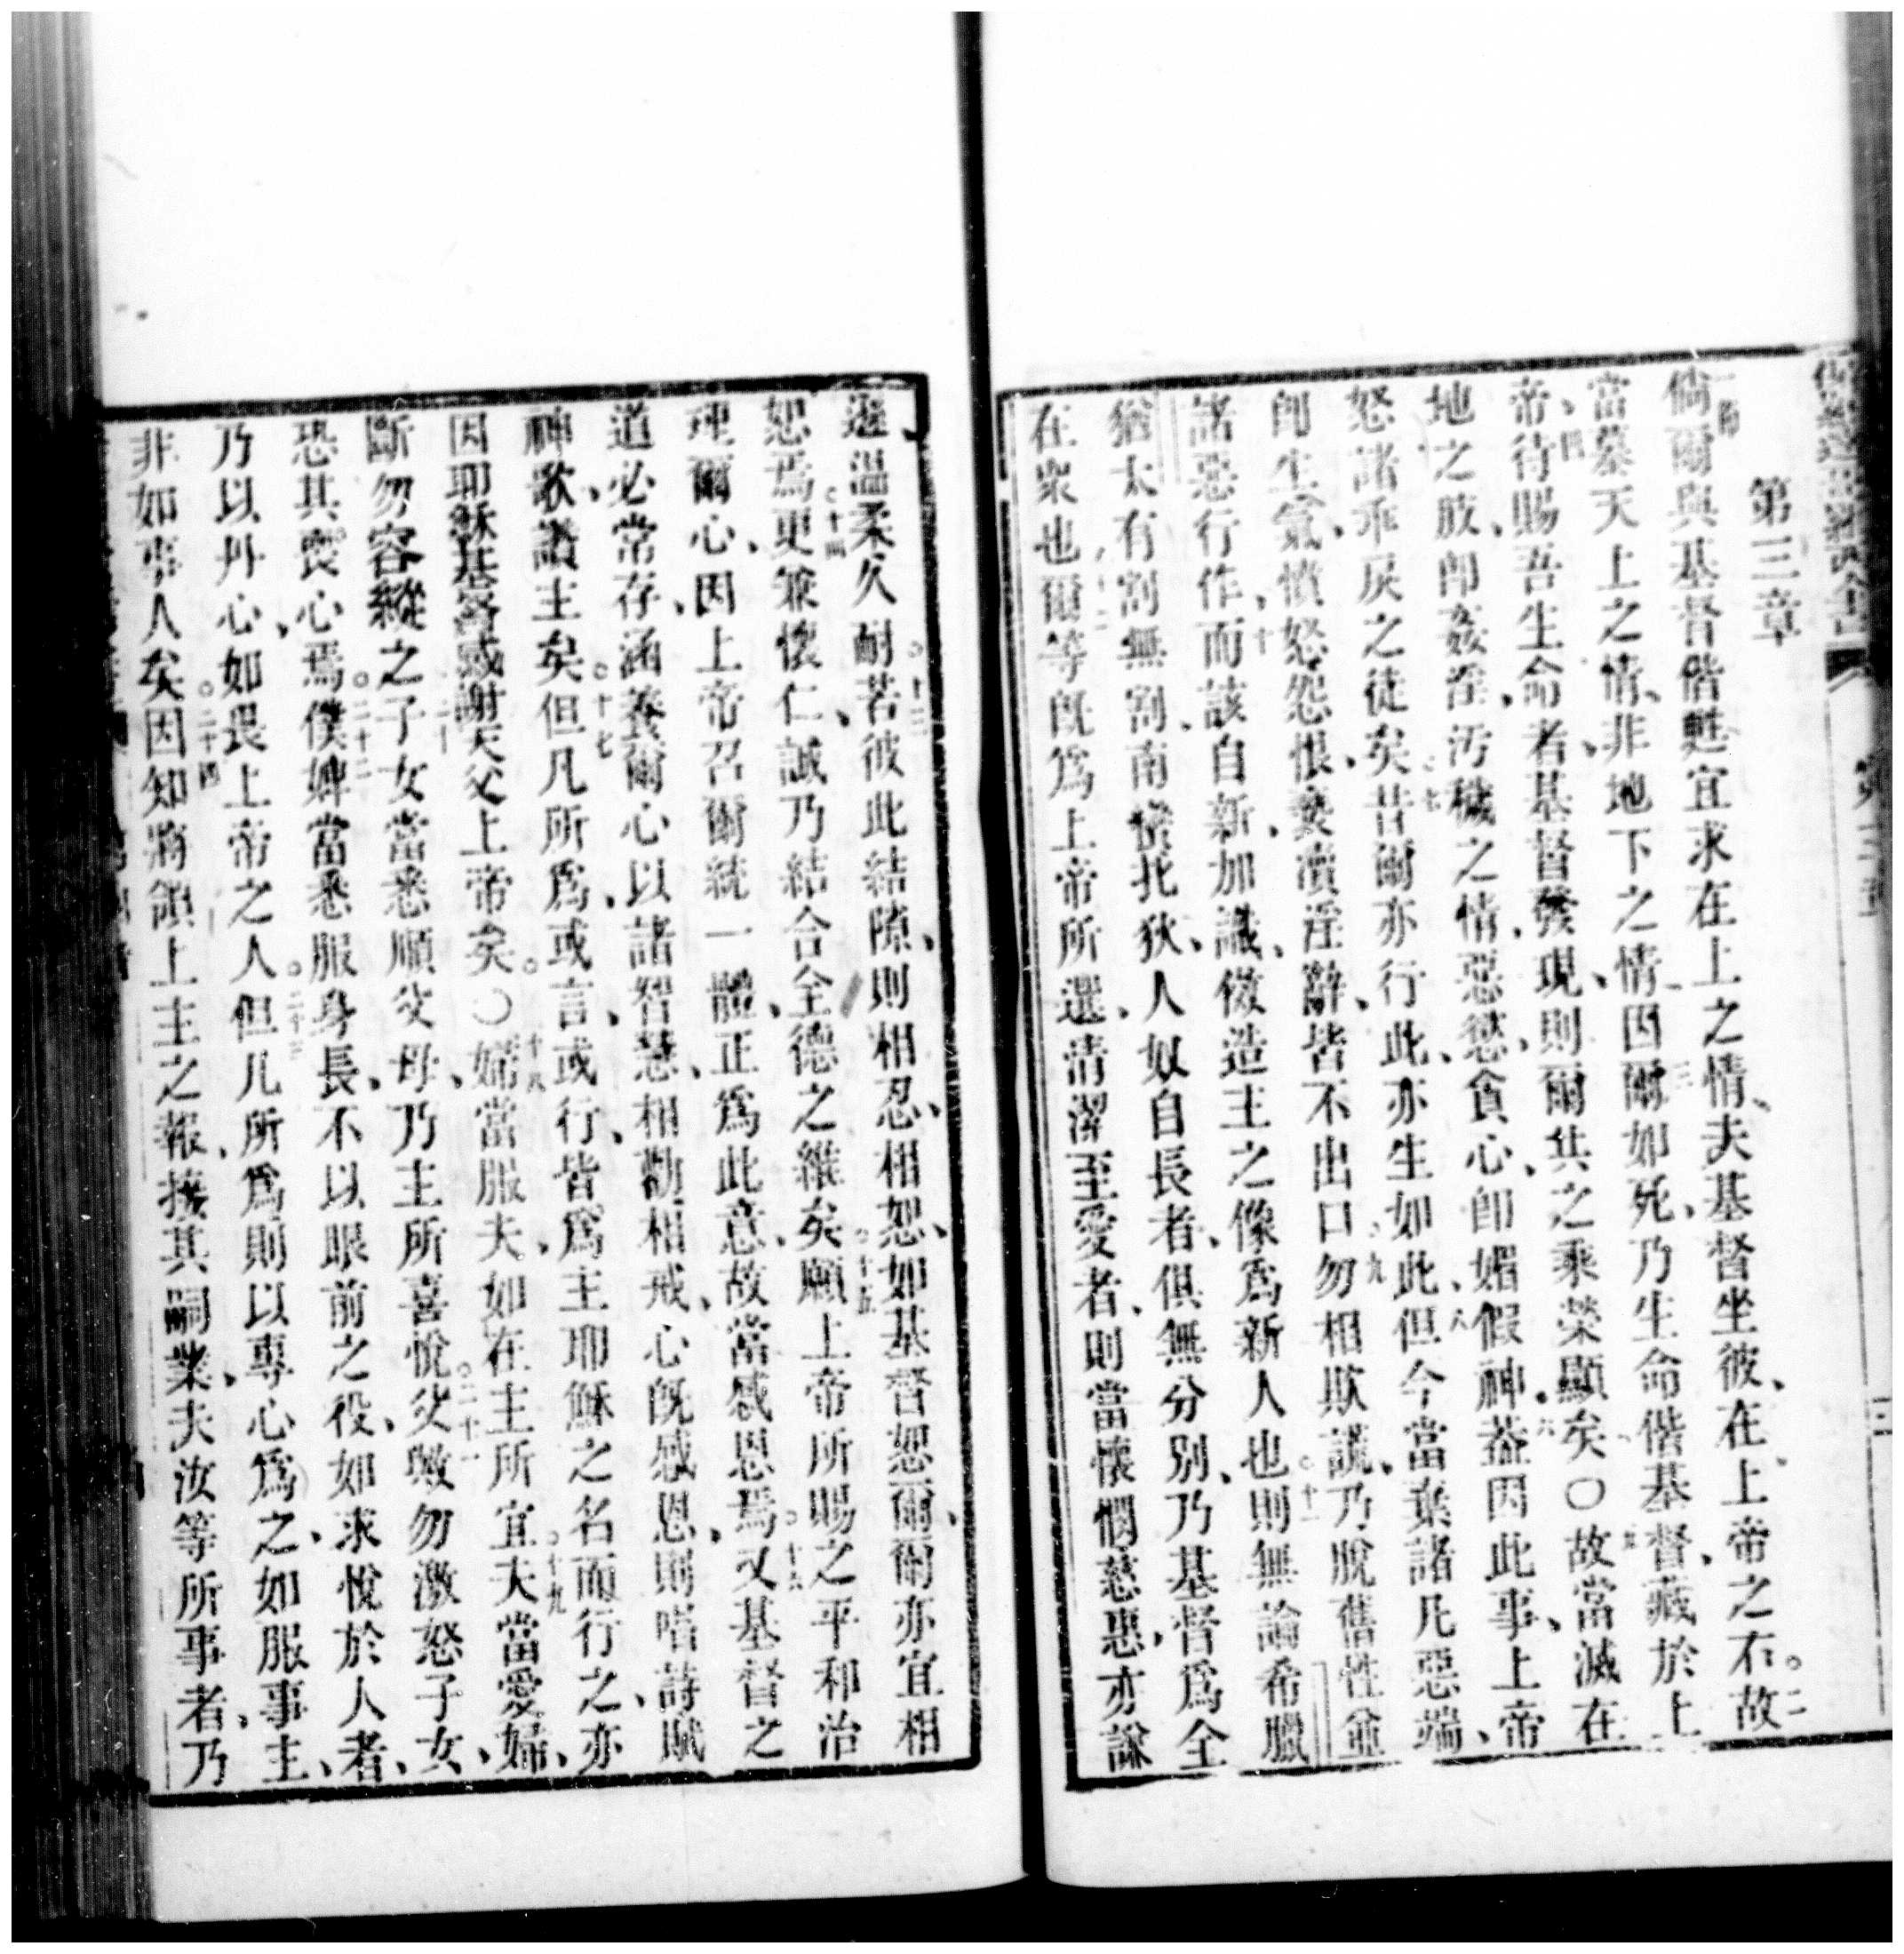 第三章
一節倘爾與基督偕甦宜求在上之情、夫基督坐彼、在上帝之右。二故
當慕天上之情、非地下之情、三因爾如死、乃生命偕基督、藏於上
帝、四待賜吾生命者、基督發現、則爾共之乘榮顯矣〇五故當滅在
地之肢、卽姦淫、汚穢之情、惡慾、貪心、卽媚假神。六葢因此事、上帝
怒諸乖戾之徒矣。七昔爾亦行此、亦生如此、八但今當棄諸凡惡端、
卽生氣、憤怒、怨恨、褻瀆、淫辭、皆不出口、九勿相欺謊、乃脫舊性並
諸惡行作、十而該自新、加識、倣造主之像爲新人也。十一則無論希臘
猶太有割無割、南蠻北狄、人奴自長者、俱無分別、乃基督爲全
在衆也、十二爾等旣爲上帝所選、清潔至愛者、則當懷憫慈惠、亦謙
遜温柔久耐。十三若彼此結隙、則相忍、相恕、如基督恕爾、爾亦宜相
恕焉。十四更兼懷仁、誠乃結合全德之維矣。十五願上帝所賜之平和治
理爾心、因上帝召爾統一體、正爲此意、故當感恩焉。十六又基督之
道必常存、涵養爾心以諸智慧、相勸相戒、心旣感恩、則唱詩賦
神歌、讚主矣。十七但凡所爲、或言、或行、皆爲主耶穌之名而行之、亦
因耶穌基督感謝天父上帝矣。〇十八婦當服夫、如在主所宜。十九夫當愛婦、
斷勿容縱之二十子女當悉順父母、乃主所喜悅。二十一父歟勿激怒子女、
恐其喪心焉。二十二僕婢當悉服身長、不以眼前之役、如求悅於人者、
乃以丹心、如畏上帝之人。二十三但凡所爲則以專心爲之、如服事主、
非如事人矣。二十四因知將領上主之報、接其嗣業、夫汝等所事者、乃